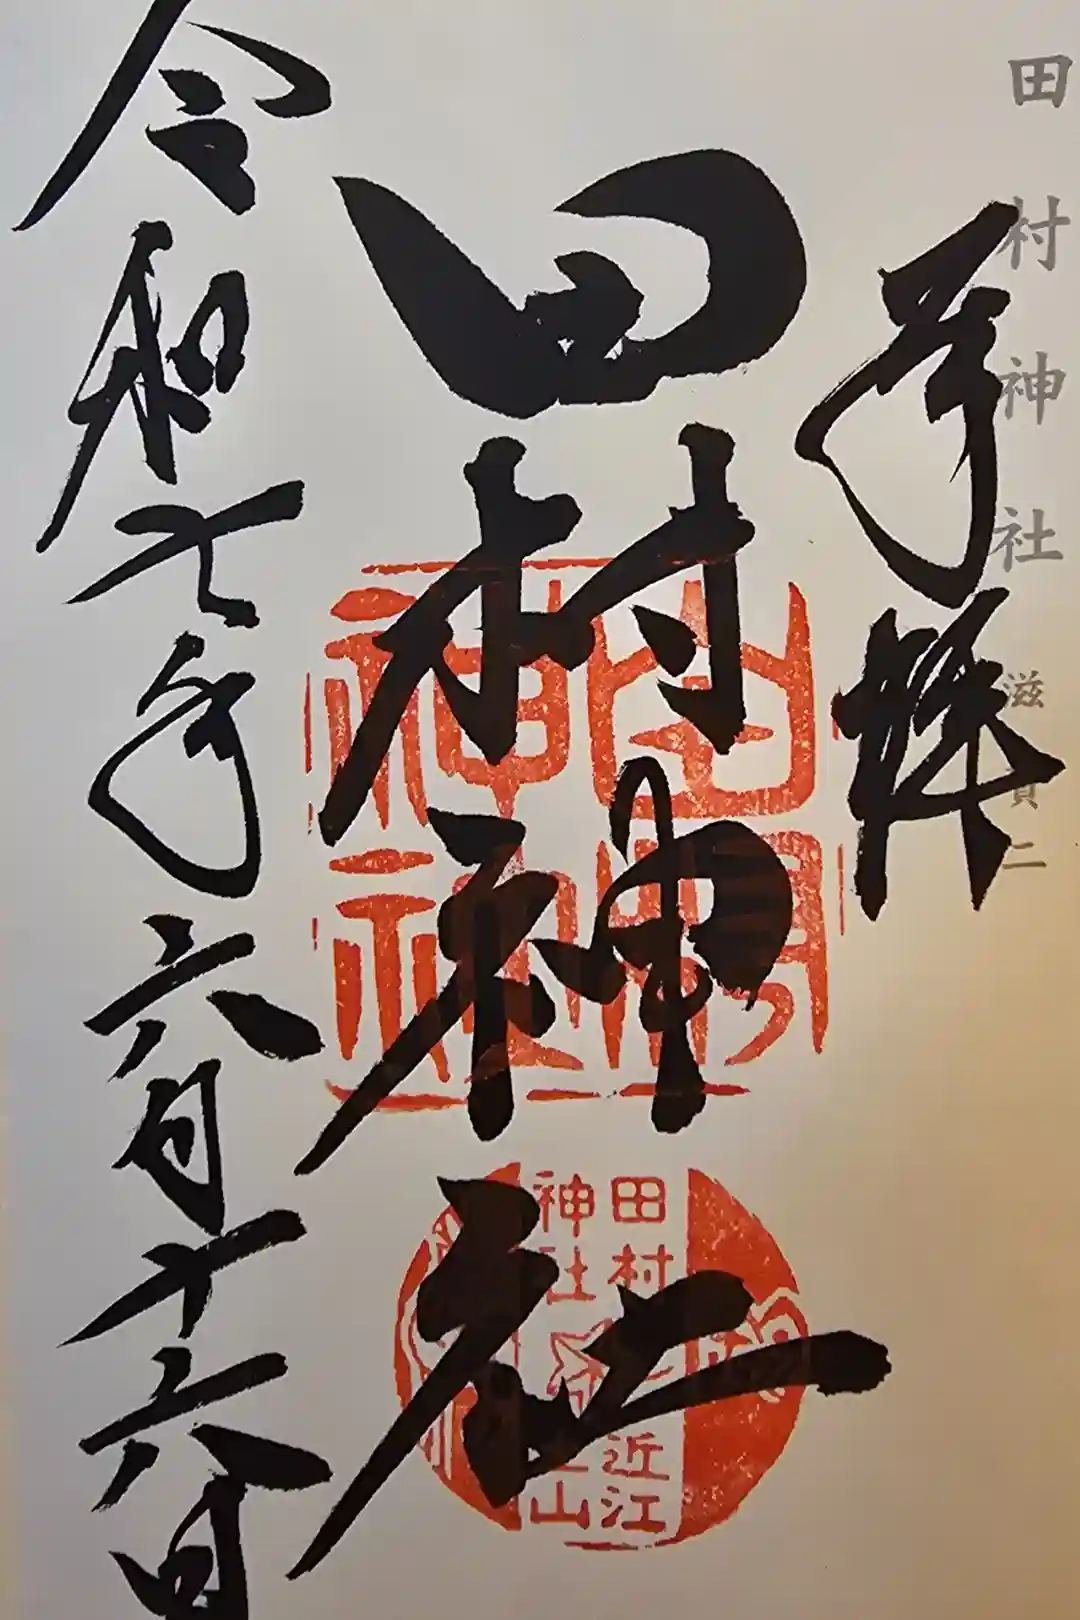 田村神社
滋賀二
奉拝
田村神社
田村神社
田村
神社
近江
土山
令和七年六月十六日